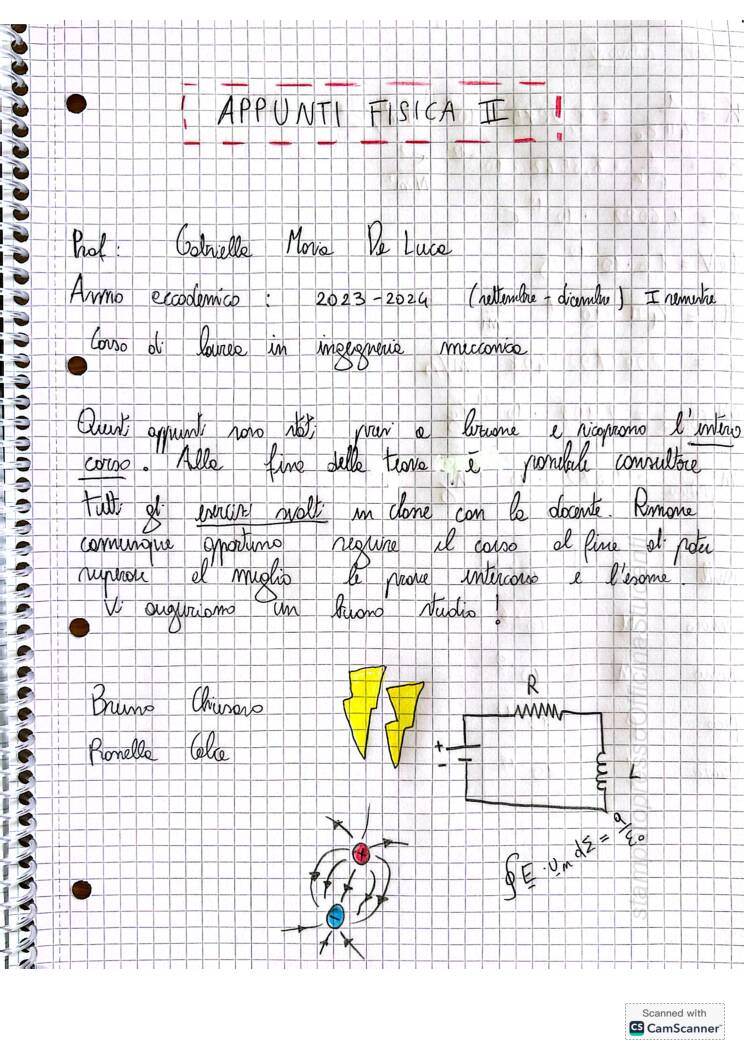 APPUNTI FISICA II
Prof: Gabriella Maria De Luca
Anno accademico : 2023-2024 (settembre - dicembre) I semestre
Corso di laurea in ingegneria meccanica
Questi appunti sono stati presi a lezione e ricoprono l'intero
corso. Alla fine della teoria è possibile consultare
tutti gli esercizi svolti in classe con la docente. Rimane
comunque opportuno seguire il corso al fine di poter
superare al meglio le prove intercorso e l'esame.
Vi auguriamo un buono studio!
Bruno Chiusaro
Rossella Calce
R
+
-
L
+
-
∮E · u_n dΣ = q/ε₀
Scanned with
CS CamScanner